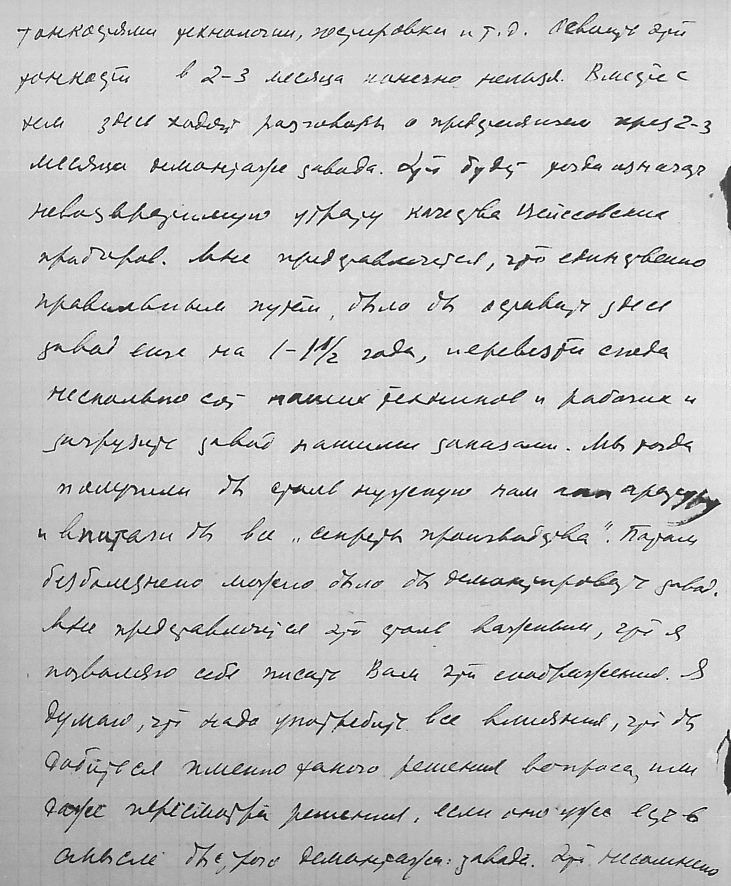 тонкостями технологии, юстировки и т.д. Освоить эти
тонкости в 2-3 месяца конечно нельзя. Вместе с
тем здесь ходят разговоры о предполагаемом через 2-3
месяца демонтаже завода. Это будет тогда означать
невозвратимую утрату качества Цейссовских
приборов. Мне представляется, что единственно
правильным путем, было бы оставить здесь
завод еще на 1-1½ года, перевезти сюда
несколько сот наших техников и рабочих и
загрузить завод нашими заказами. Мы тогда
получили бы столь нужную нам аппаратуру
и впитали бы все „секреты производства“. Потом
безболезнено можно было бы демонтировать завод.
Мне представляется это столь важным, что я
позволяю себе писать Вам эти соображения. Я
думаю, что надо употребить все влияния, что бы
добиться именно такого решения вопроса, или
даже пересмотра решения, если оно уже есть в
смысле быстрого демонтажа завода. Это несомненно